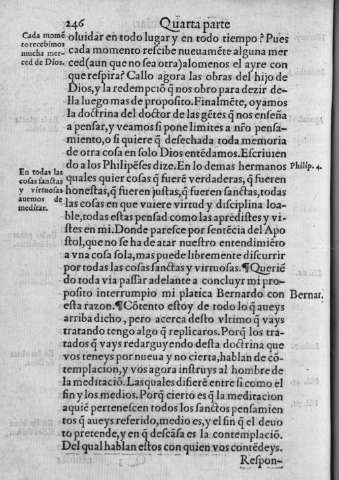 246 Quarta parte
Cada momẽ
to recebimos
mucha mer-
ced de Dios.
oluidar en todo lugar y en todo tiempo? Pues
cada momento rescibe nueuamẽte alguna mer
ced(aun que no sea otra)alomenos el ayre con
que respira? Callo agora las obras del hijo de
Dios,y la redempciõ q̃ nos obro para dezir de-
lla luego mas de proposito. Finalmẽte, oyamos
la doctrina del doctor de las gẽtes q̃ nos enseña
a pensar,y veamos si pone limites a nr̃o pensa-
miento,o si quiere q̃ desechada toda memoria
de otra cosa en solo Dios entẽdamos.Escriuien
do a los Philipẽses dize.En lo demas hermanos
Philip. 4.
En todas las
cosas sanctas
y virtuosas
auemos de
meditar.
quales quier cosas q̃ fuerẽ verdaderas, q̃ fueren
honestas,q̃ fueren justas,q̃ fueren sanctas,todas
las cosas en que vuiere virtud y disciplina loa-
ble,todas estas pensad como las aprẽdistes y vi-
stes en mi.Donde paresce por sentẽcia del Apo
stol,que no se ha de atar nuestro entendimiẽto
a vna cosa sola,mas puede libremente discurrir
por todas las cosas sanctas y virtuosas. ¶Queriẽ
do toda via passar adelante a concluyr mi pro-
posito interrumpio mi platica Bernardo con
Bernar.
esta razon. ¶Cõtento estoy de todo lo q̃ aueys
arriba dicho, pero acerca desto vltimo q̃ vays
tratando tengo algo q̃ replicaros. Porq̃ los tra-
tados q̃ vays redarguyendo desta doctrina que
vos teneys por nueua y no cierta,hablan de cõ-
templacion,y vos agora instruys al hombre de
la meditaciõ.Lasquales difierẽ entre si como el
fin y los medios.Porq̃ cierto es q̃ la meditacion
aquiẽ pertenescen todos los sanctos pensamien
tos q̃ aueys referido,medio es,y el fin q̃ el deuo
to pretende,y en q̃ descãsa es la contemplaciõ.
Del qual hablan estos con quien vos contẽdeys.
Respon-